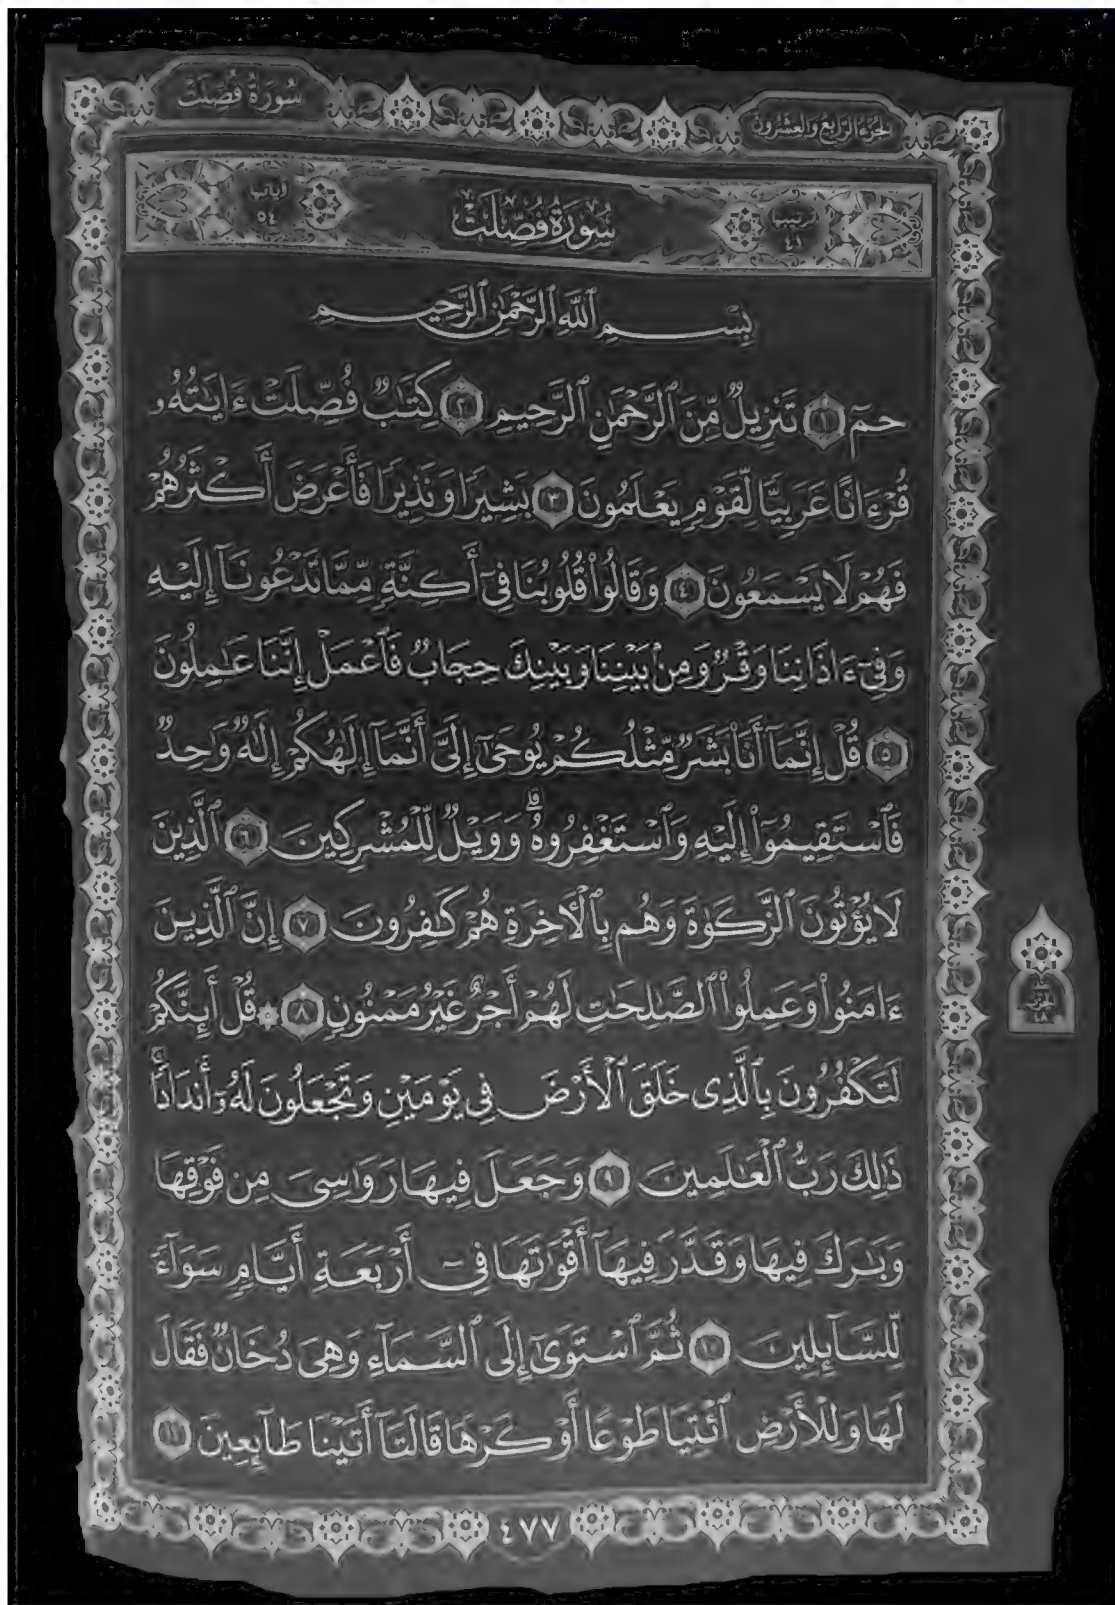 الجزء الرابع والعشرون
سُورَةُ فُصِّلَتْ
ترتيبها ٤١
سُورَةُ فُصِّلَتْ
آياتها ٥٤
بِسْمِ ٱللَّهِ ٱلرَّحْمَٰنِ ٱلرَّحِيمِ
حمٓ ١ تَنزِيلٌ مِّنَ ٱلرَّحْمَٰنِ ٱلرَّحِيمِ ٢ كِتَٰبٌ فُصِّلَتْ ءَايَٰتُهُۥ
قُرْءَانًا عَرَبِيًّا لِّقَوْمٍ يَعْلَمُونَ ٣ بَشِيرًا وَنَذِيرًا فَأَعْرَضَ أَكْثَرُهُمْ
فَهُمْ لَا يَسْمَعُونَ ٤ وَقَالُوا۟ قُلُوبُنَا فِىٓ أَكِنَّةٍ مِّمَّا تَدْعُونَآ إِلَيْهِ
وَفِىٓ ءَاذَانِنَا وَقْرٌ وَمِنۢ بَيْنِنَا وَبَيْنِكَ حِجَابٌ فَٱعْمَلْ إِنَّنَا عَٰمِلُونَ
٥ قُلْ إِنَّمَآ أَنَا۠ بَشَرٌ مِّثْلُكُمْ يُوحَىٰٓ إِلَىَّ أَنَّمَآ إِلَٰهُكُمْ إِلَٰهٌ وَٰحِدٌ
فَٱسْتَقِيمُوٓا۟ إِلَيْهِ وَٱسْتَغْفِرُوهُ ۗ وَوَيْلٌ لِّلْمُشْرِكِينَ ٦ ٱلَّذِينَ
لَا يُؤْتُونَ ٱلزَّكَوٰةَ وَهُم بِٱلْأَخِرَةِ هُمْ كَٰفِرُونَ ٧ إِنَّ ٱلَّذِينَ
ءَامَنُوا۟ وَعَمِلُوا۟ ٱلصَّٰلِحَٰتِ لَهُمْ أَجْرٌ غَيْرُ مَمْنُونٍ ٨ ۞ قُلْ أَئِنَّكُمْ
لَتَكْفُرُونَ بِٱلَّذِى خَلَقَ ٱلْأَرْضَ فِى يَوْمَيْنِ وَتَجْعَلُونَ لَهُۥٓ أَندَادًا ۚ
ذَٰلِكَ رَبُّ ٱلْعَٰلَمِينَ ٩ وَجَعَلَ فِيهَا رَوَٰسِىَ مِن فَوْقِهَا
وَبَٰرَكَ فِيهَا وَقَدَّرَ فِيهَآ أَقْوَٰتَهَا فِىٓ أَرْبَعَةِ أَيَّامٍ سَوَآءً
لِّلسَّآئِلِينَ ١٠ ثُمَّ ٱسْتَوَىٰٓ إِلَى ٱلسَّمَآءِ وَهِىَ دُخَانٌ فَقَالَ
لَهَا وَلِلْأَرْضِ ٱئْتِيَا طَوْعًا أَوْ كَرْهًا قَالَتَآ أَتَيْنَا طَآئِعِينَ ١١
٤٧٧